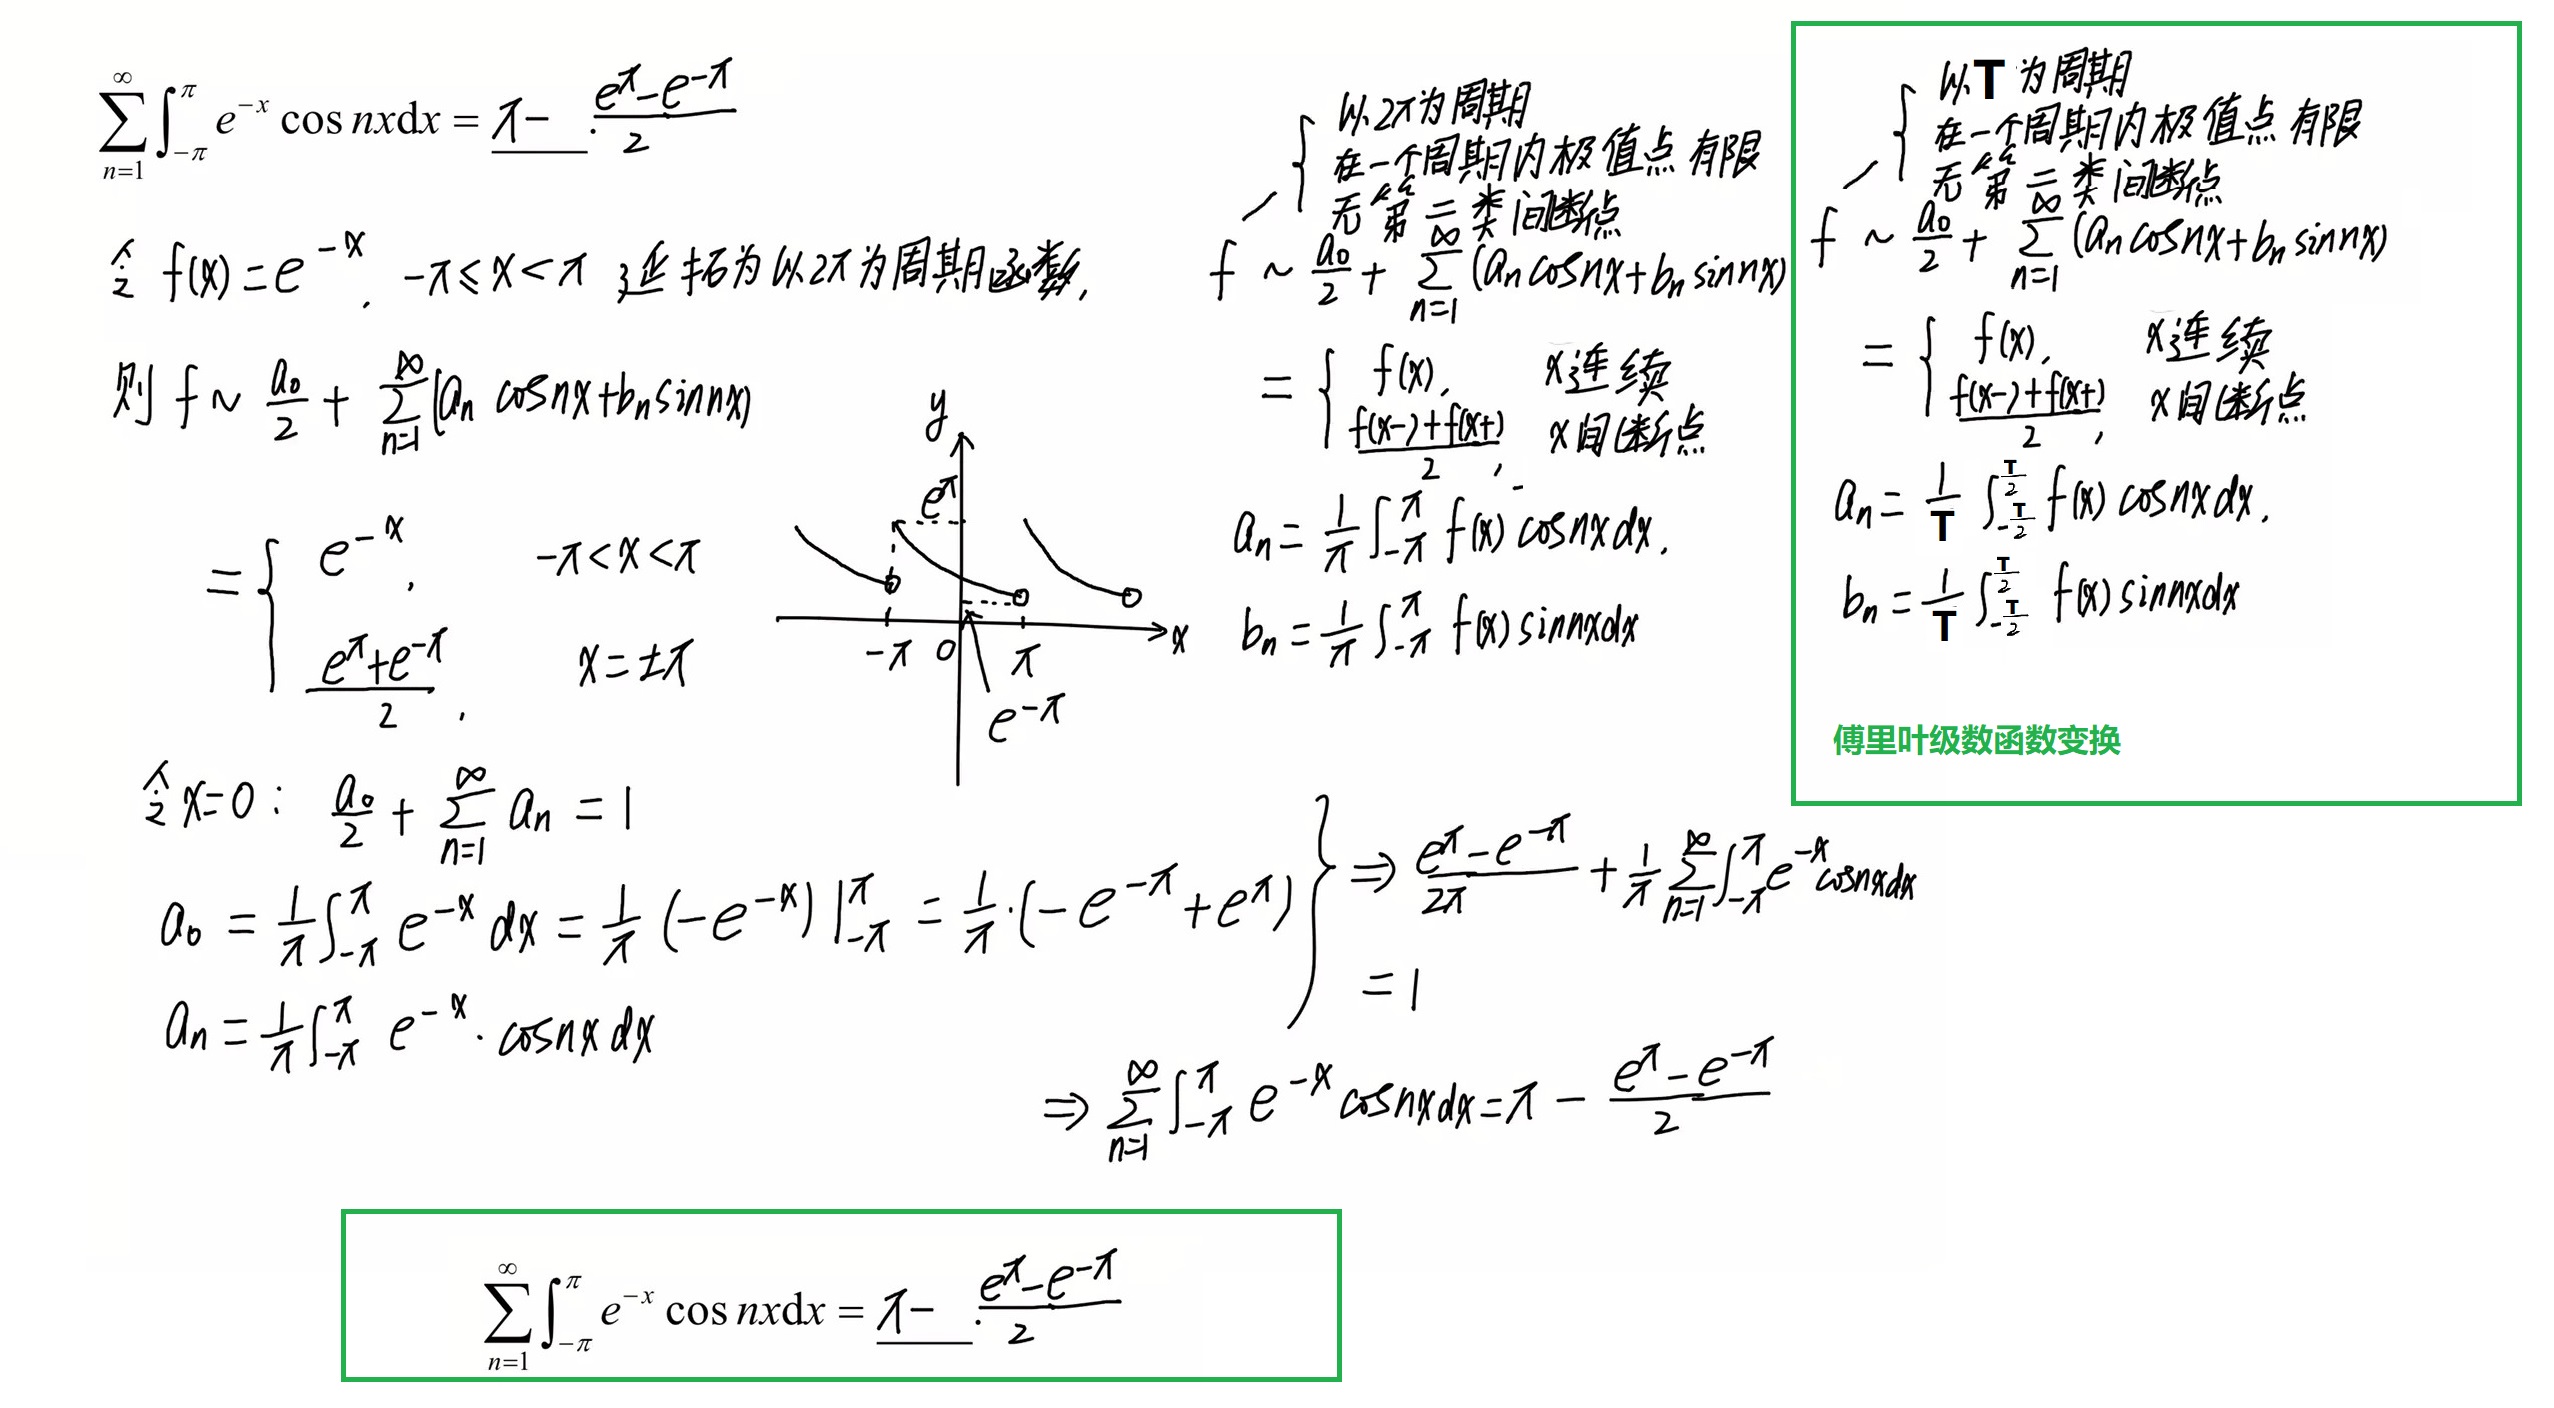 ∑_{n=1}^{∞} ∫_{-π}^{π} e^{-x} cos nxdx = π - . (e^π - e^{-π})/2
令 f(x) = e^{-x}, -π ≤ x < π 延拓为以2π为周期函数,
则 f ~ a₀/2 + ∑_{n=1}^{∞} (aₙ cosnx + bₙ sinnx)
= { e^{-x}, -π < x < π
(e^π + e^{-π})/2, x = ±π
y
e^π
-π 0 π x
e^{-π}
令 x=0: a₀/2 + ∑_{n=1}^{∞} aₙ = 1
a₀ = 1/π ∫_{-π}^{π} e^{-x} dx = 1/π (-e^{-x}) |_{-π}^{π} = 1/π · (-e^{-π} + e^π)
aₙ = 1/π ∫_{-π}^{π} e^{-x} · cosnx dx
} ⇒ (e^π - e^{-π})/2π + 1/π ∑_{n=1}^{∞} ∫_{-π}^{π} e^{-x} cosnxdx
= 1
⇒ ∑_{n=1}^{∞} ∫_{-π}^{π} e^{-x} cosnxdx = π - (e^π - e^{-π})/2
以2π为周期
在一个周期内极值点有限
无第二类间断点
f ~ a₀/2 + ∑_{n=1}^{∞} (aₙ cosnx + bₙ sinnx)
= { f(x), x连续
(f(x-)+f(x+))/2, x间断点
aₙ = 1/π ∫_{-π}^{π} f(x) cosnxdx,
bₙ = 1/π ∫_{-π}^{π} f(x) sinnxdx
以T为周期
在一个周期内极值点有限
无第二类间断点
f ~ a₀/2 + ∑_{n=1}^{∞} (aₙ cosnx + bₙ sinnx)
= { f(x), x连续
(f(x-)+f(x+))/2, x间断点
aₙ = 1/T ∫_{-T/2}^{T/2} f(x) cosnxdx,
bₙ = 1/T ∫_{-T/2}^{T/2} f(x) sinnxdx
傅里叶级数函数变换
∑_{n=1}^{∞} ∫_{-π}^{π} e^{-x} cos nxdx = π - . (e^π - e^{-π})/2